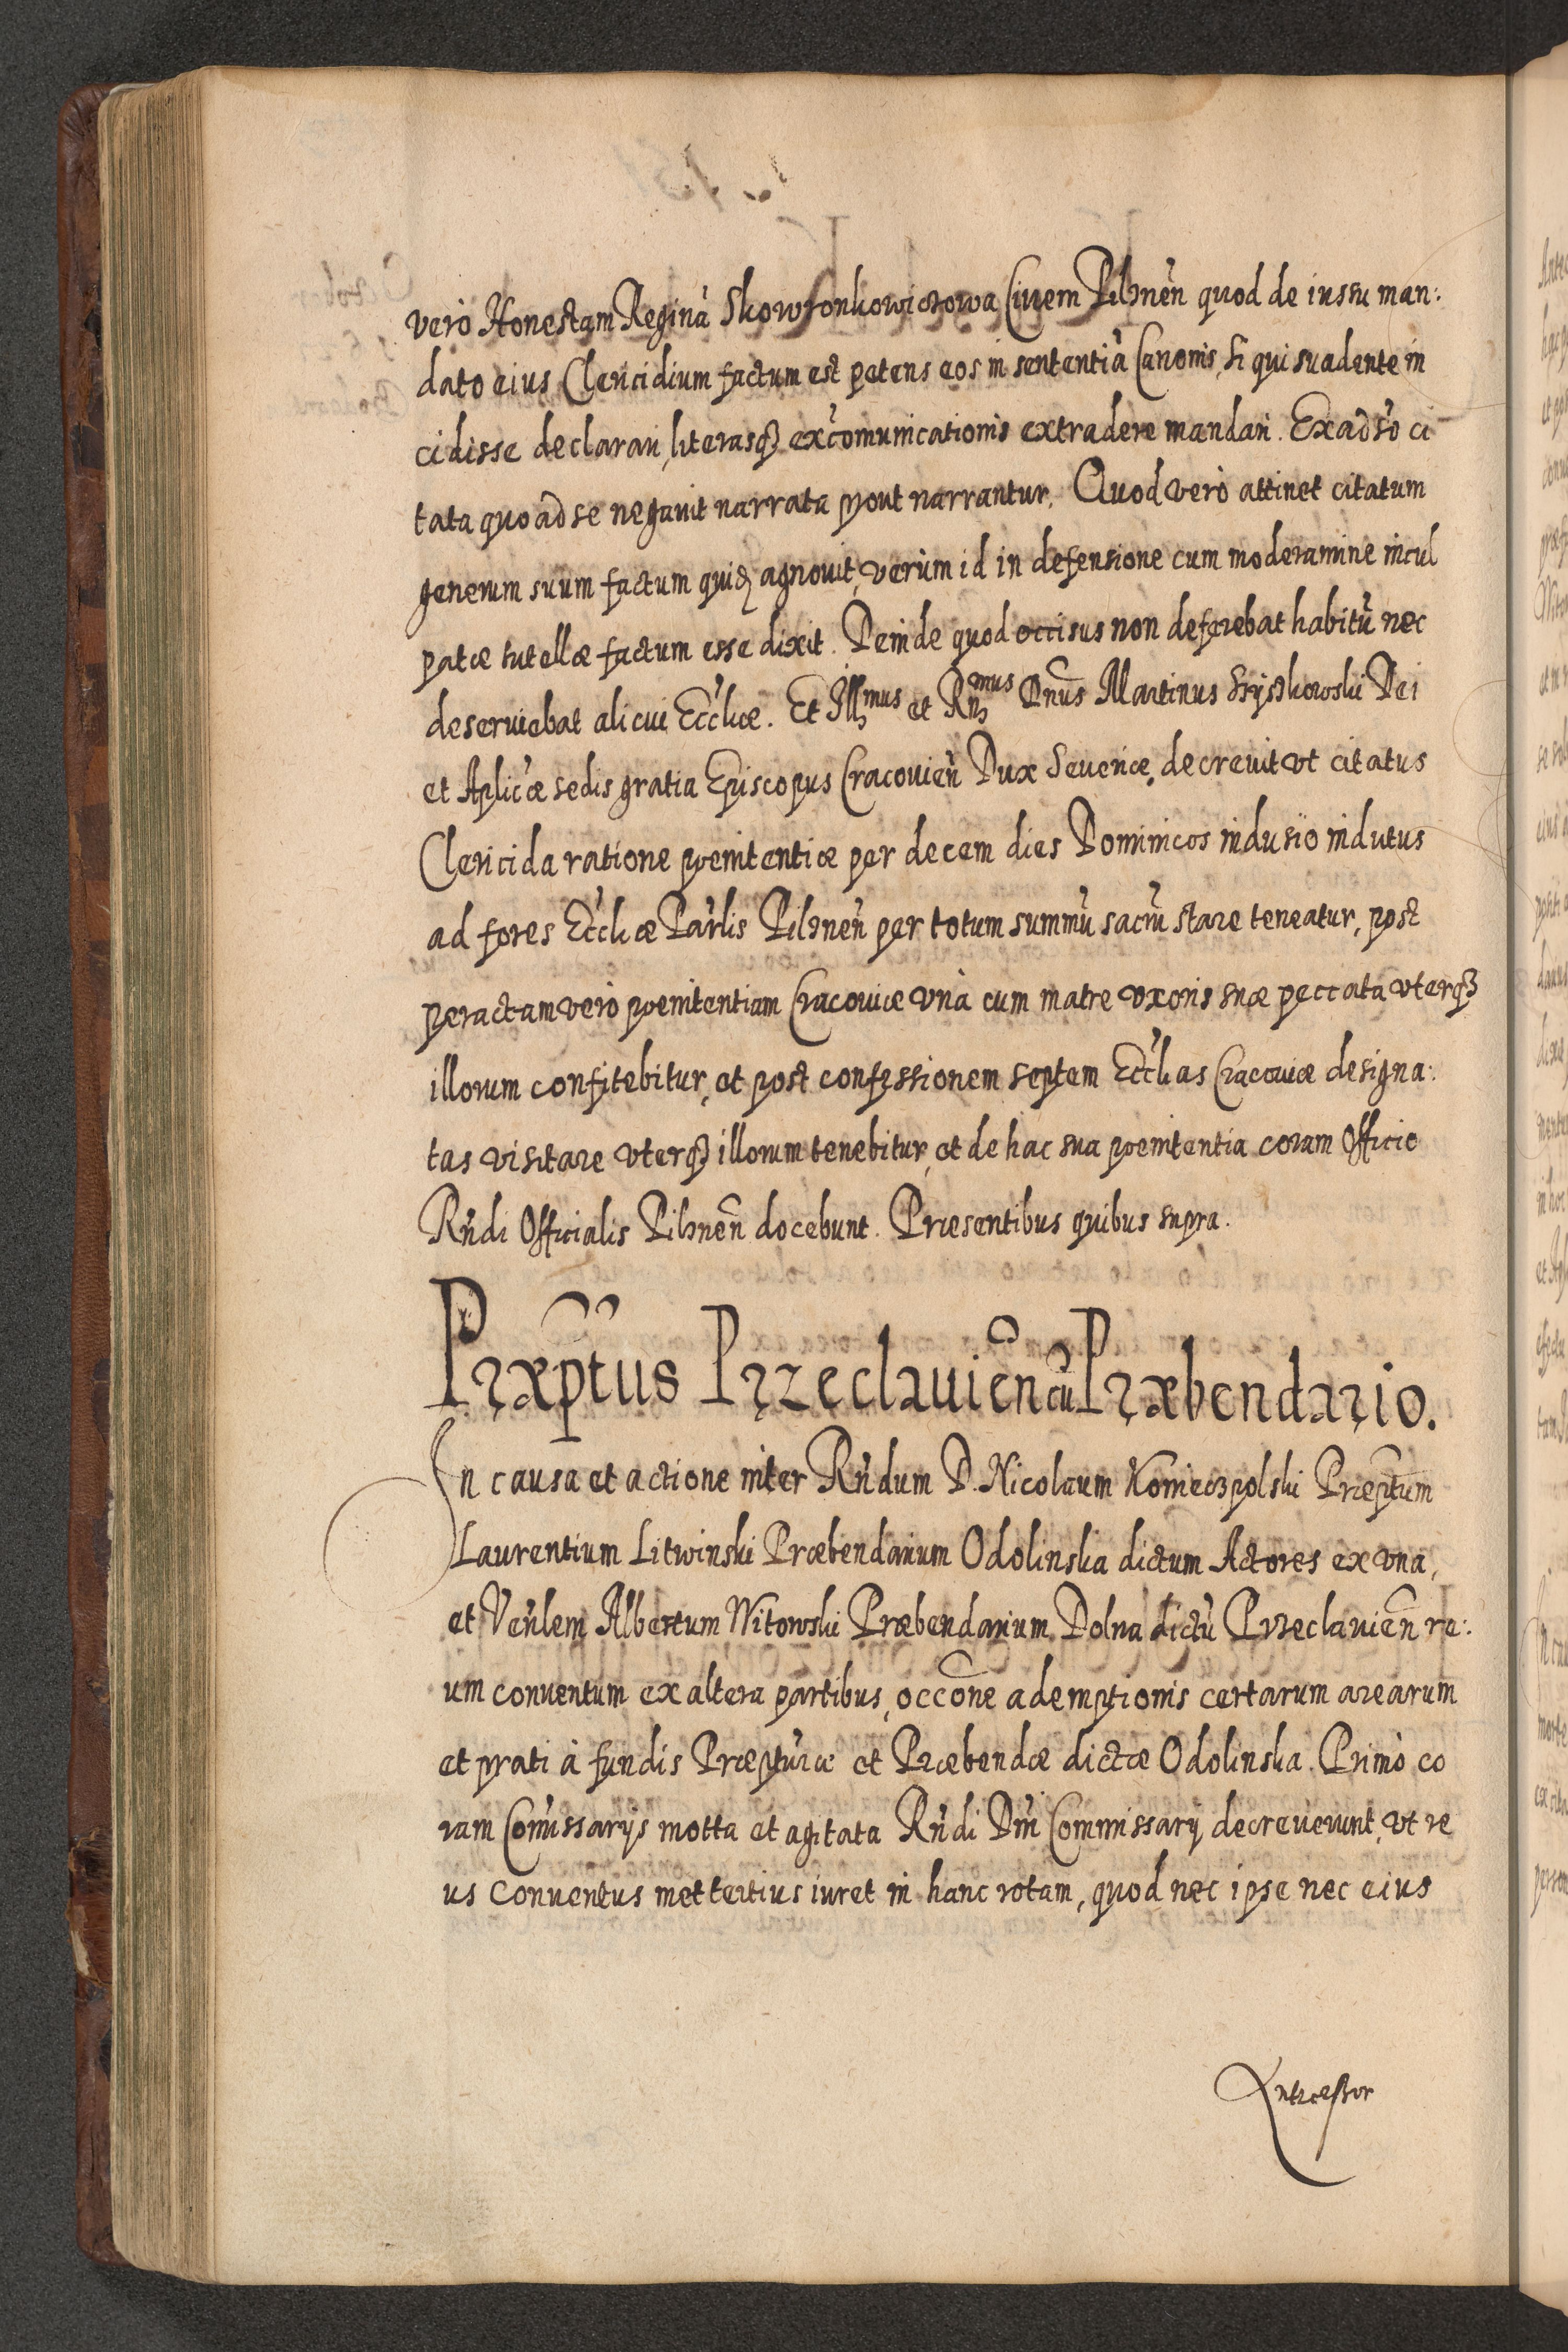 verò Honestam Reginā Skowronkowiczowa Ciuem Pilznen̄ quod de iussu man:
dato eius Clericidium factum est petens eos in sententiā Canonis, si qui suadente in
cidisse declarari, literasq3 excōmunicationis extradere mandari. Ex aduso ci
tata quo ad se negauit narrata prout narrantur. Quod vero attinet citatum
generum suum factum quid agnouit, verùm id in defensione cum moderamine incul
patæ tutellæ factum esse dixit. Deinde quod occisus non deferebat habitū nec
deseruiebat alicui Eccliæ. Et Illmus et Rndmus Dnus Martinus Szyszkowski Dei
et Aplicæ sedis gratia Episcopus Cracouien̄ Dux Seueriæ, decreuit vt citatus
Clericida ratione pœnitentiæ per decem dies Dominicos indusio indutus
ad fores Eccliæ Parlis Pilznen̄ per totum summū sacrū stare teneatur, post
peractam verò pœnitentiam Cracouiæ vnà cum matre vxoris suæ peccata vterq3
illorum confitebitur, et post confessionem septem Ecclias Cracouiæ designa:
tas visitare vterq3 illorum tenebitur, et de hac sua pœnitentia coram Officio
Rndi Officialis Pilznen̄ docebunt. Præsentibus quibus supra.
Præptus Przeclauien̄ cū Præbendario.
In causa et actione inter Rndum D. Nicolaum Konieczpolski Præptum
Laurentium Litwinski Præbendarium Odolinska dictum Actores ex vna,
et Venlem Albertum Witowski Præbendarium Dolna dictū Przeclauien̄ re:
um conuentum ex altera partibus, occōne ademptionis certarum arearum
et prati à fundis Præpturæ et Præbendæ dictæ Odolinska. Primò co
ram Comissarijs motta et agitata Rndi Dni Commissarij decreuerunt, vt re
us Conuentus mettertius iuret in hanc rotam, quod nec ipse nec eius
Antræssor